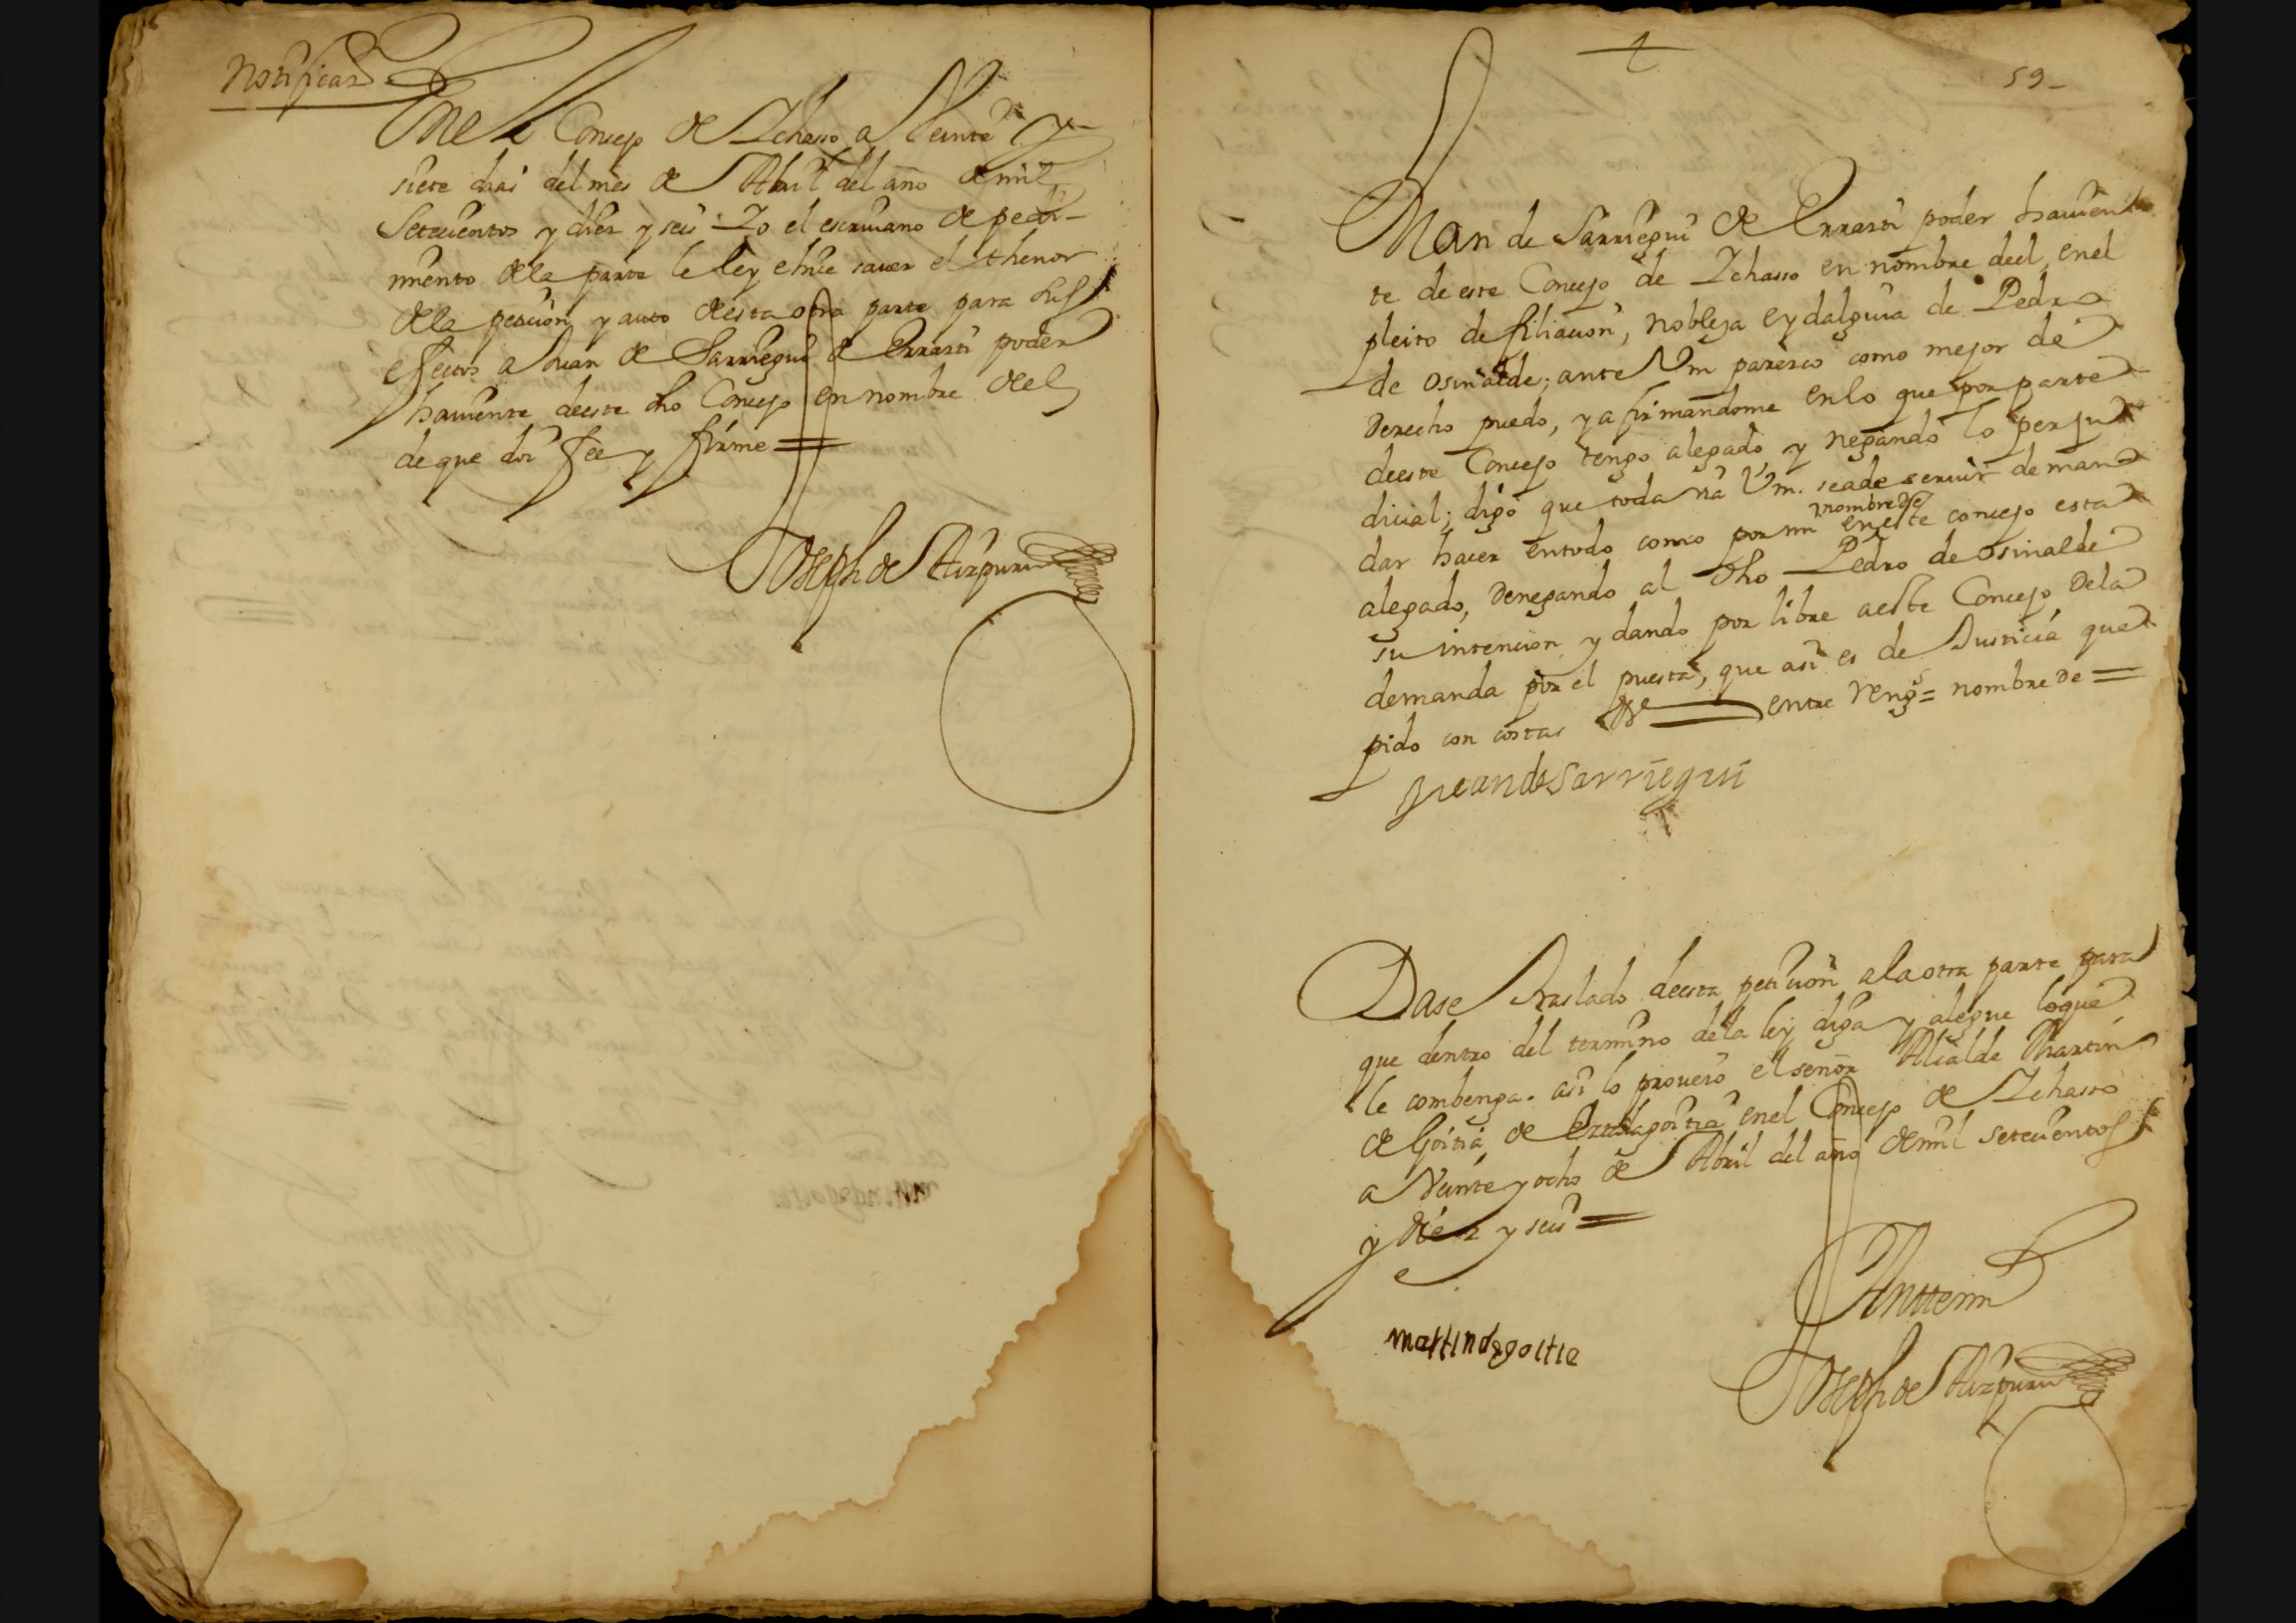 Notificaⁿ
En el Concejo de Ychasso a Veinte y
siete dias del mes de Abril del año de mil
Setecientos y diez y seis Yo el escriuano de pedi-
miento de la parte le ley e hice sauer el thenor
de la peticion y auto desta otra parte para sus
efectos a Juan de Sarriegui de Errasti poder
hauiente deeste dho Concejo en nombre del
de que doi fee y firme =
Joseph de Aizpuru
59-
Juan de Sarriegui de Errasti poder hauien
te de este Concejo de Ychasso en nombre deel, en el
pleito de filiacion, nobleza eydalguia de Pedro
de Osinalde; ante Vm paresco como mejor de
Derecho puedo, y afirmandome en lo que por parte
deeste Concejo tengo alegado y negando lo perju
dicial; digo que toda via Vm. seade seruir de man
dar hacer entodo como por mi eneste concejo esta
nombre de
alegado, denegando al dho Pedro de Osinalde
su intencion y dando por libre aeste Concejo dela
demanda por el puesta, que asi es de Justicia que
pido con costas &ª entre reng^s = nombre de =
Juan de Sarriegui
Dase traslado deesta peticion ala otra parte para
que dentro del termino dela ley diga y alegue loque
le combenga. asi lo proueio el señor Alcalde Martin
de Goitia de enel Concejo de Ychasso
a Veinte y ocho de Abril del año de mil setecientos
y diez y seis =
martin de goitia
Antte mi
Joseph de Aizpuru